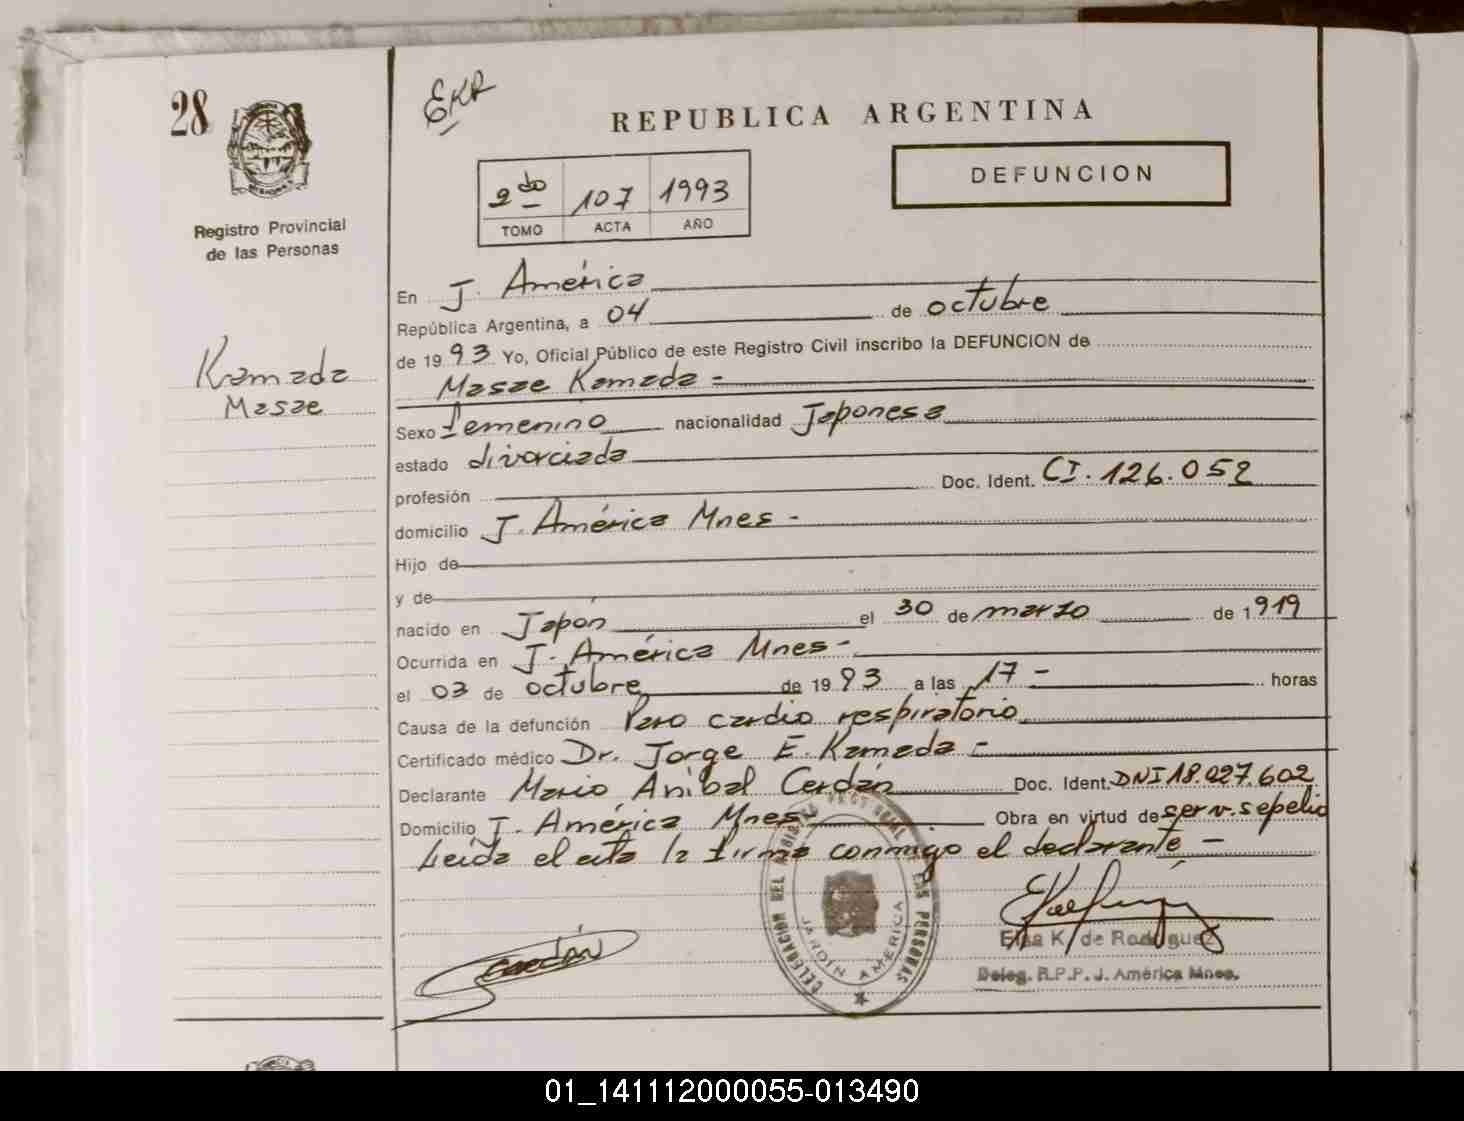 28
EKR
REPUBLICA ARGENTINA
DEFUNCION
2do 107 1993
TOMO ACTA AÑO
Registro Provincial
de las Personas
Kamada
Masae
En J. América
República Argentina, a 04 de octubre
de 1993 Yo, Oficial Público de este Registro Civil inscribo la DEFUNCION de
Masae Kamada -
Sexo femenino nacionalidad Japonesa
estado divorciada
profesión Doc. Ident. CI. 126.052
domicilio J. América Mnes -
Hijo de
y de
nacido en Japón el 30 de marzo de 1919
Ocurrida en J. América Mnes -
el 03 de octubre de 1993 a las 17 - horas
Causa de la defunción Paro cardio respiratorio
Certificado médico Dr. Jorge E. Kamada -
Declarante Mario Aníbal Cerdán Doc. Ident. DNI 18.027.602
Domicilio J. América Mnes Obra en virtud de serv. sepelio
Leída el acta la firma conmigo el declarante -
DELEGACION DEL REGISTRO PROVINCIAL DE LAS PERSONAS
JARDIN AMERICA
Cerdán
Elsa K. de Rodriguez
Deleg. R.P.P. J. América Mnes.
01_141112000055-013490